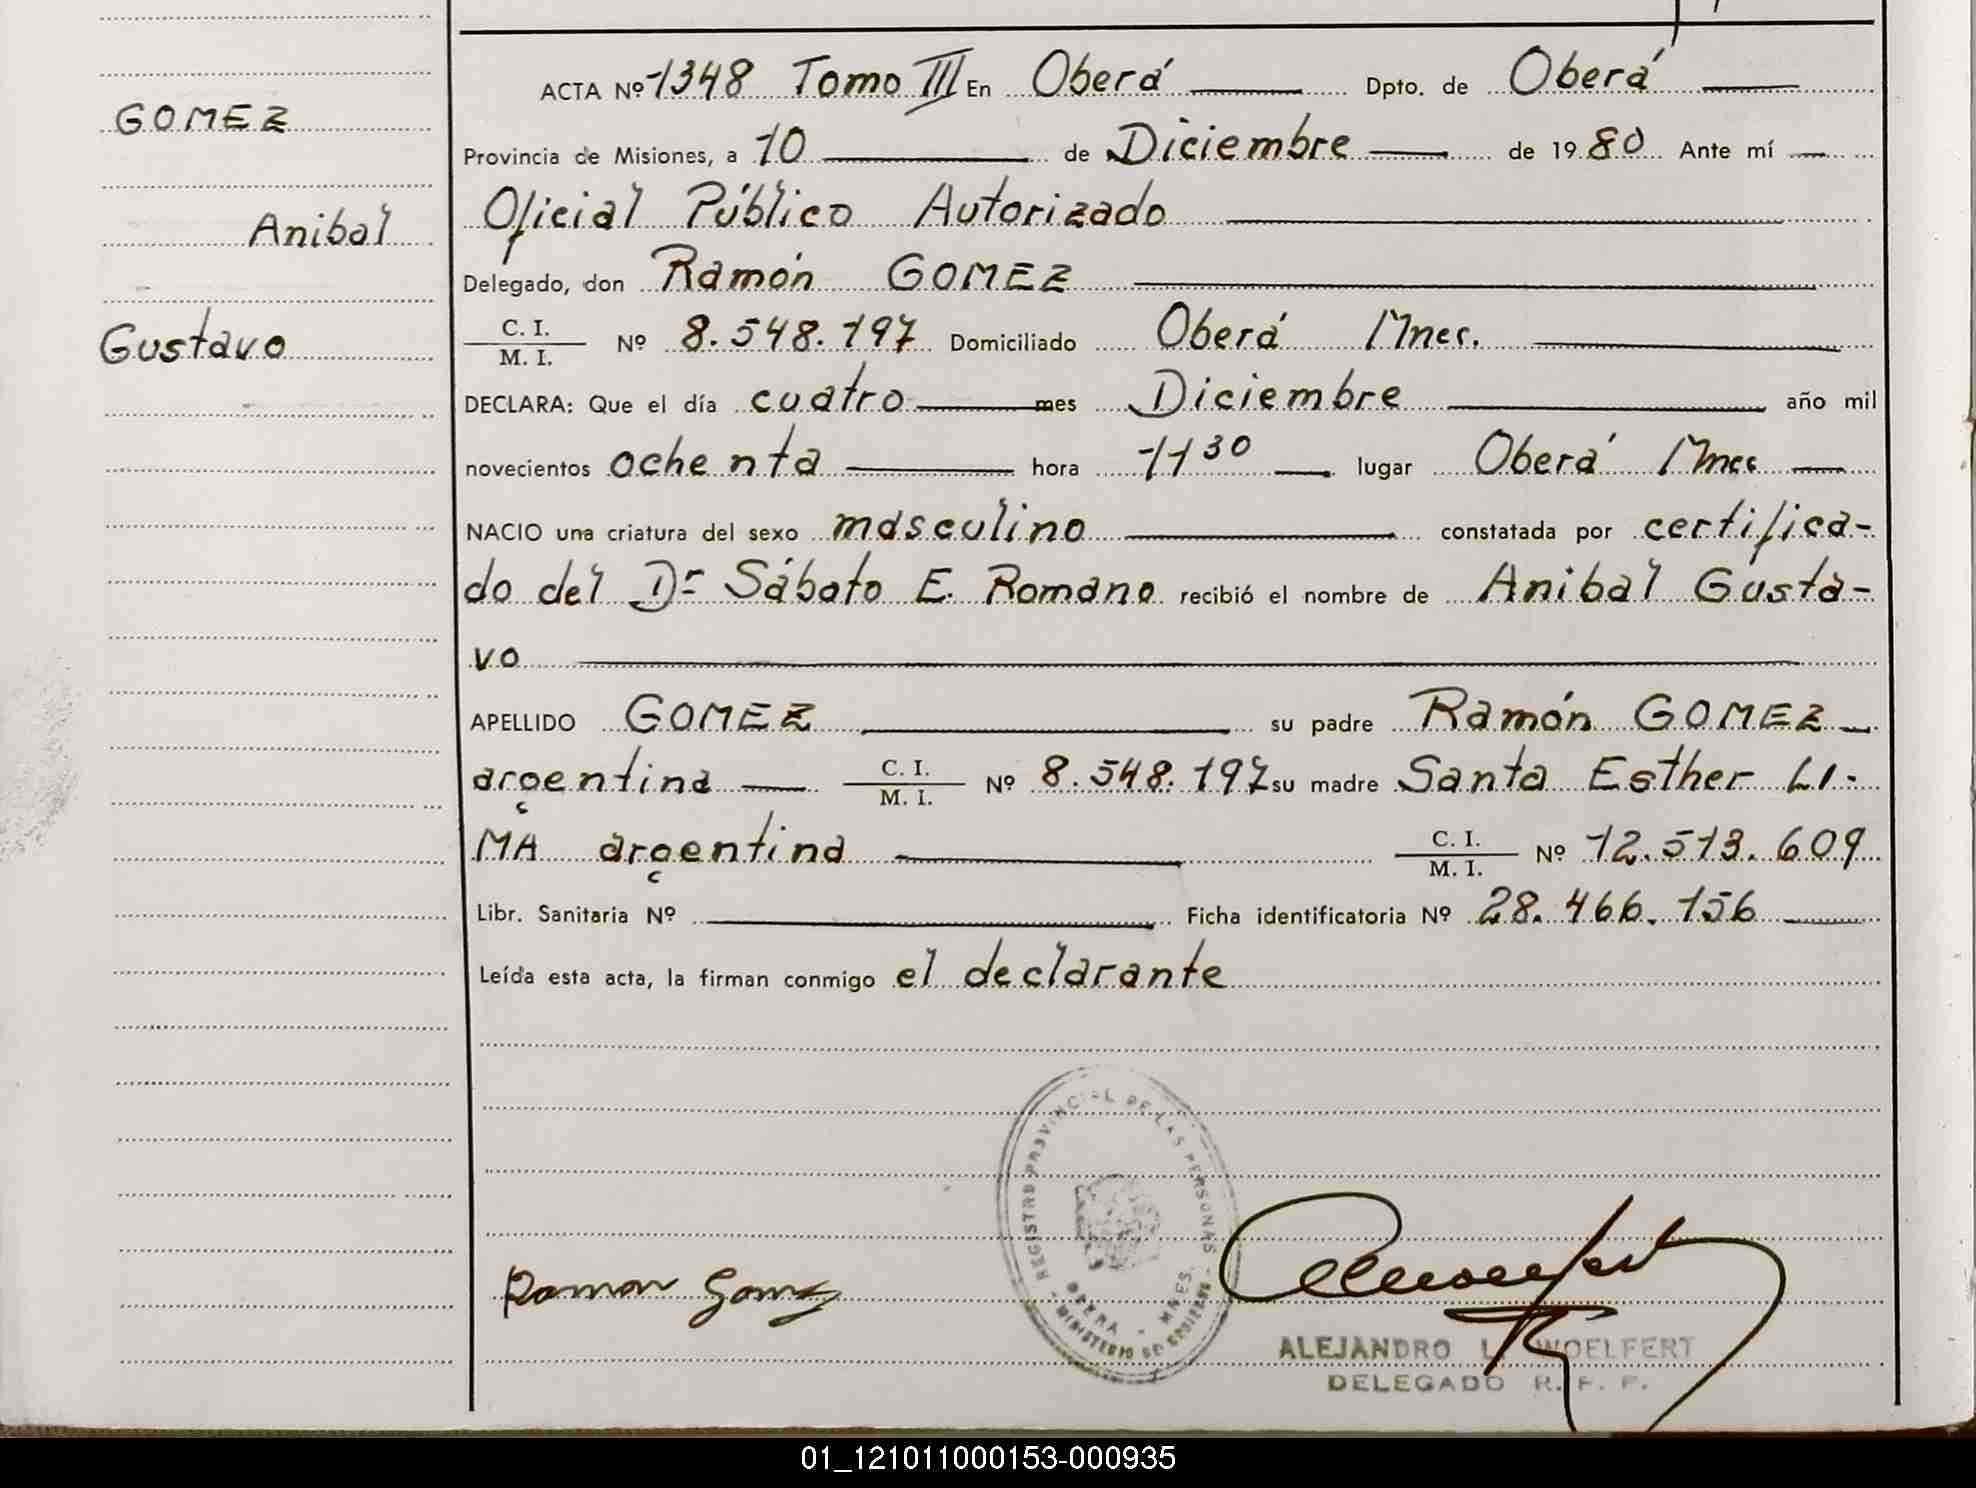 GOMEZ
Anibal
Gustavo
ACTA Nº 1348 Tomo III En Oberá Dpto. de Oberá
Provincia de Misiones, a 10 de Diciembre de 1980 Ante mí
Oficial Público Autorizado
Delegado, don Ramón GOMEZ
C. I.
M. I. Nº 8.548.197 Domiciliado Oberá Mnes.
DECLARA: Que el día cuatro mes Diciembre año mil
novecientos ochenta hora 11 30 lugar Oberá Mnes
NACIO una criatura del sexo masculino constatada por certifica-
do del Dr Sábato E. Romano recibió el nombre de Anibal Gusta-
vo
APELLIDO GOMEZ su padre Ramón GOMEZ
argentina C. I. M. I. Nº 8.548.197 su madre Santa Esther LI-
MA argentina C. I. M. I. Nº 12.513.609
Libr. Sanitaria Nº Ficha identificatoria Nº 28.466.156
Leída esta acta, la firman conmigo el declarante
REGISTRO PROVINCIAL DE LAS PERSONAS
OBERA - MNES.
MINISTERIO DE GOBIERNO
Ramon Gomez
ALEJANDRO L. WOELFERT
DELEGADO R. P. P.
01_121011000153-000935